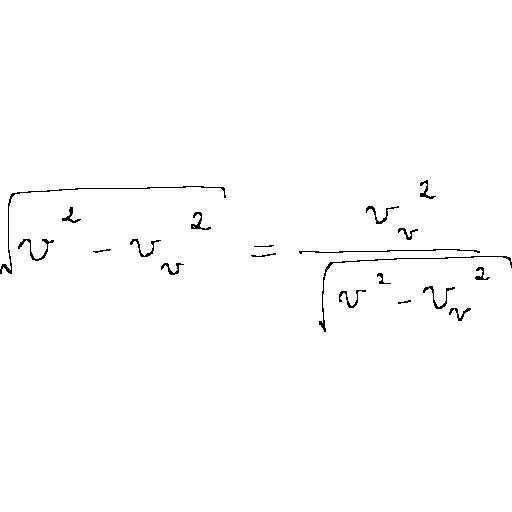 \sqrt{v^2 - v_v^2} = \frac{v_v^2}{\sqrt{v^2 - v_v^2}}